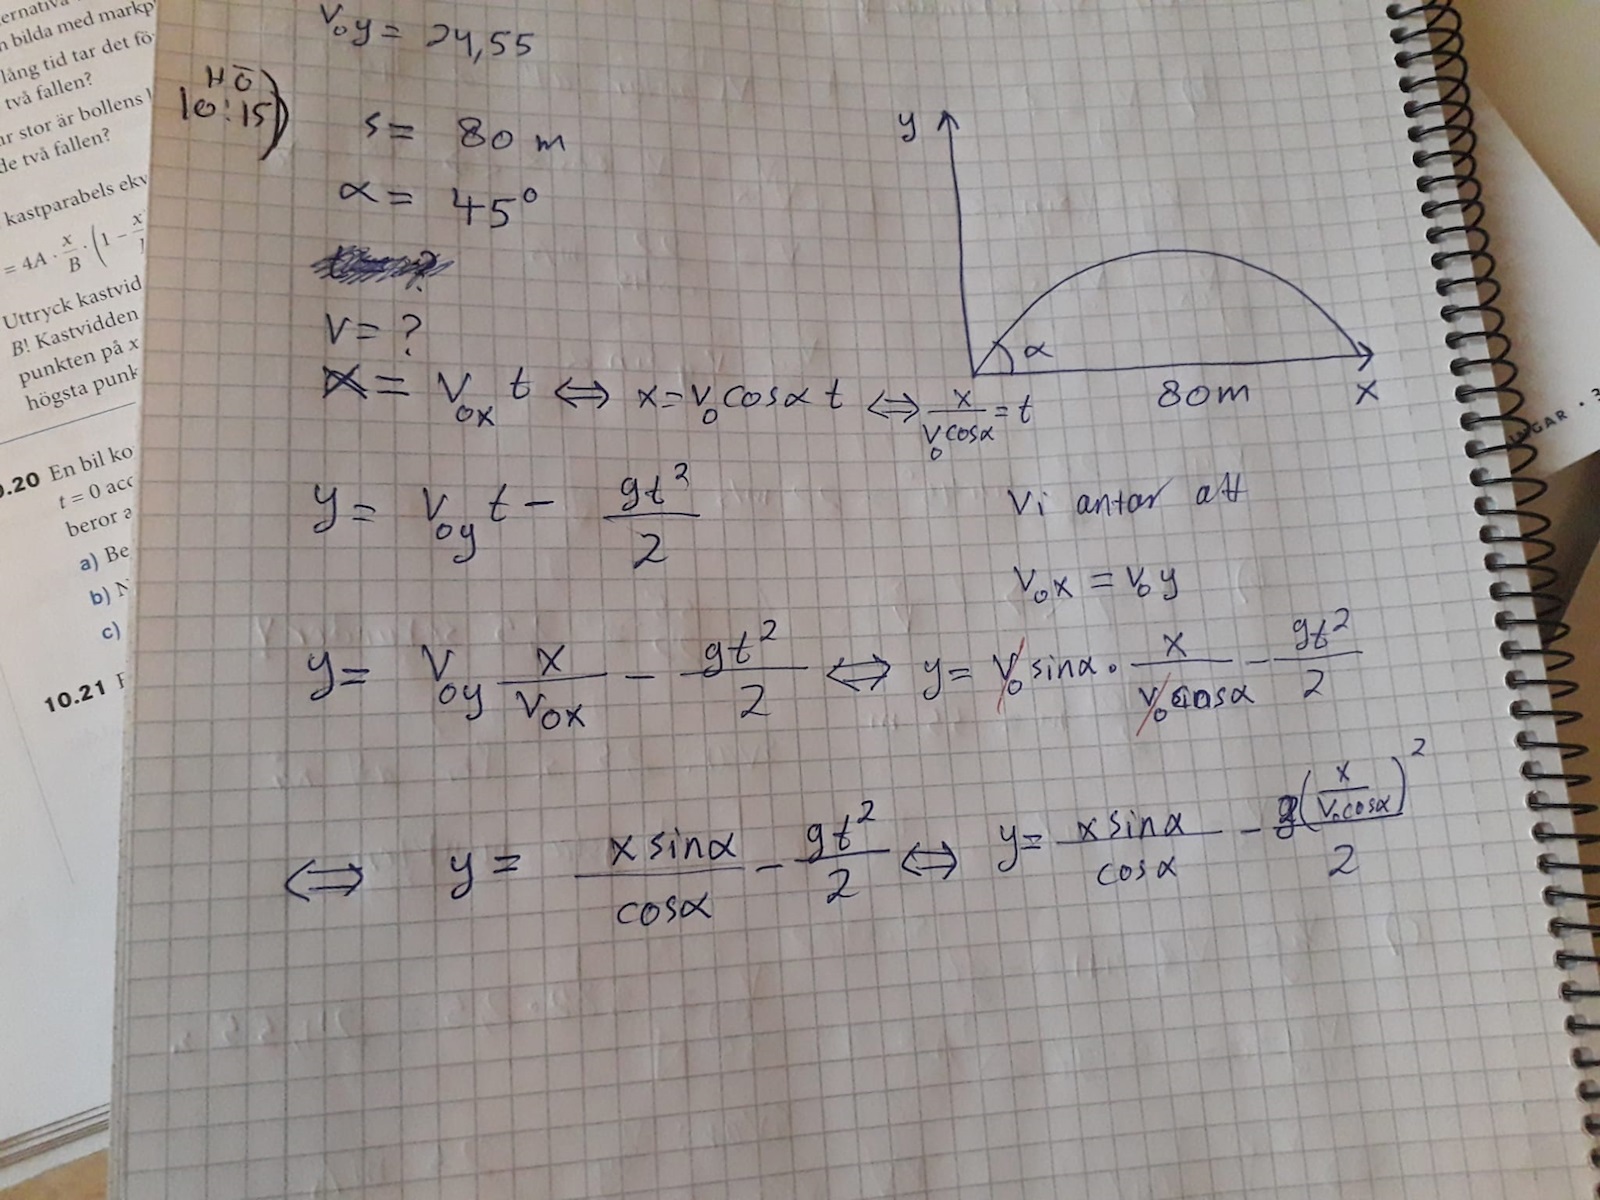 ernativa
n bilda med markp
lång tid tar det fö
två fallen?
ar stor är bollens l
de två fallen?
kastparabels ekv
= 4A · x/B · (1 − x
Uttryck kastvid
B! Kastvidden
punkten på x
högsta punk
.20 En bil ko
t = 0 acc
beror a
a) Be
b) N
c)
10.21 F
V₀y = 24,55
HÖ
10:15)
s = 80 m
α = 45°
V = ?
x = V₀ₓ t ⇔ x = V₀ cosα t ⇔ x/(V₀ cosα) = t
y = V₀y t − gt²/2
y
α
80m
x
Vi antar att
V₀x = V₀y
y = V₀y x/V₀x − gt²/2 ⇔ y = V₀ sinα · x/(V₀ cosα) − gt²/2
⇔ y = x sinα/cosα − gt²/2 ⇔ y = x sinα/cosα − g(x/(V₀ cosα))²/2
NGAR · 3